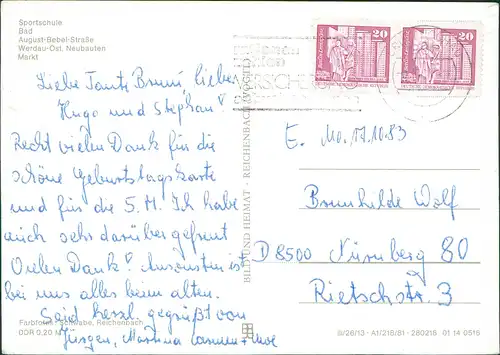 Sportschule
Bad
August-Bebel-Straße
Werdau-Ost, Neubauten
Markt
20
20
Liebe Tante Bruni, lieber
Hugo und Stephan!
Recht vielen Dank für die
schöne Geburtstagskarte
und für die 5.M. Ich habe
mich sehr darüber gefreut
Vielen Dank! Ansonsten ist
bei uns alles beim alten.
Seid herzl. gegrüßt von
Jürgen, Martina
E. Mo. 17.10.83
Brunhilde Wolf
D 8500 Nürnberg 80
Rietschstr. 3
BILD UND HEIMAT · REICHENBACH (VOGTL)
Farbfotos: Schwabe, Reichenbach
DDR 0,20 M
III/26/13 · A1/218/81 · 280216 01 14 0516